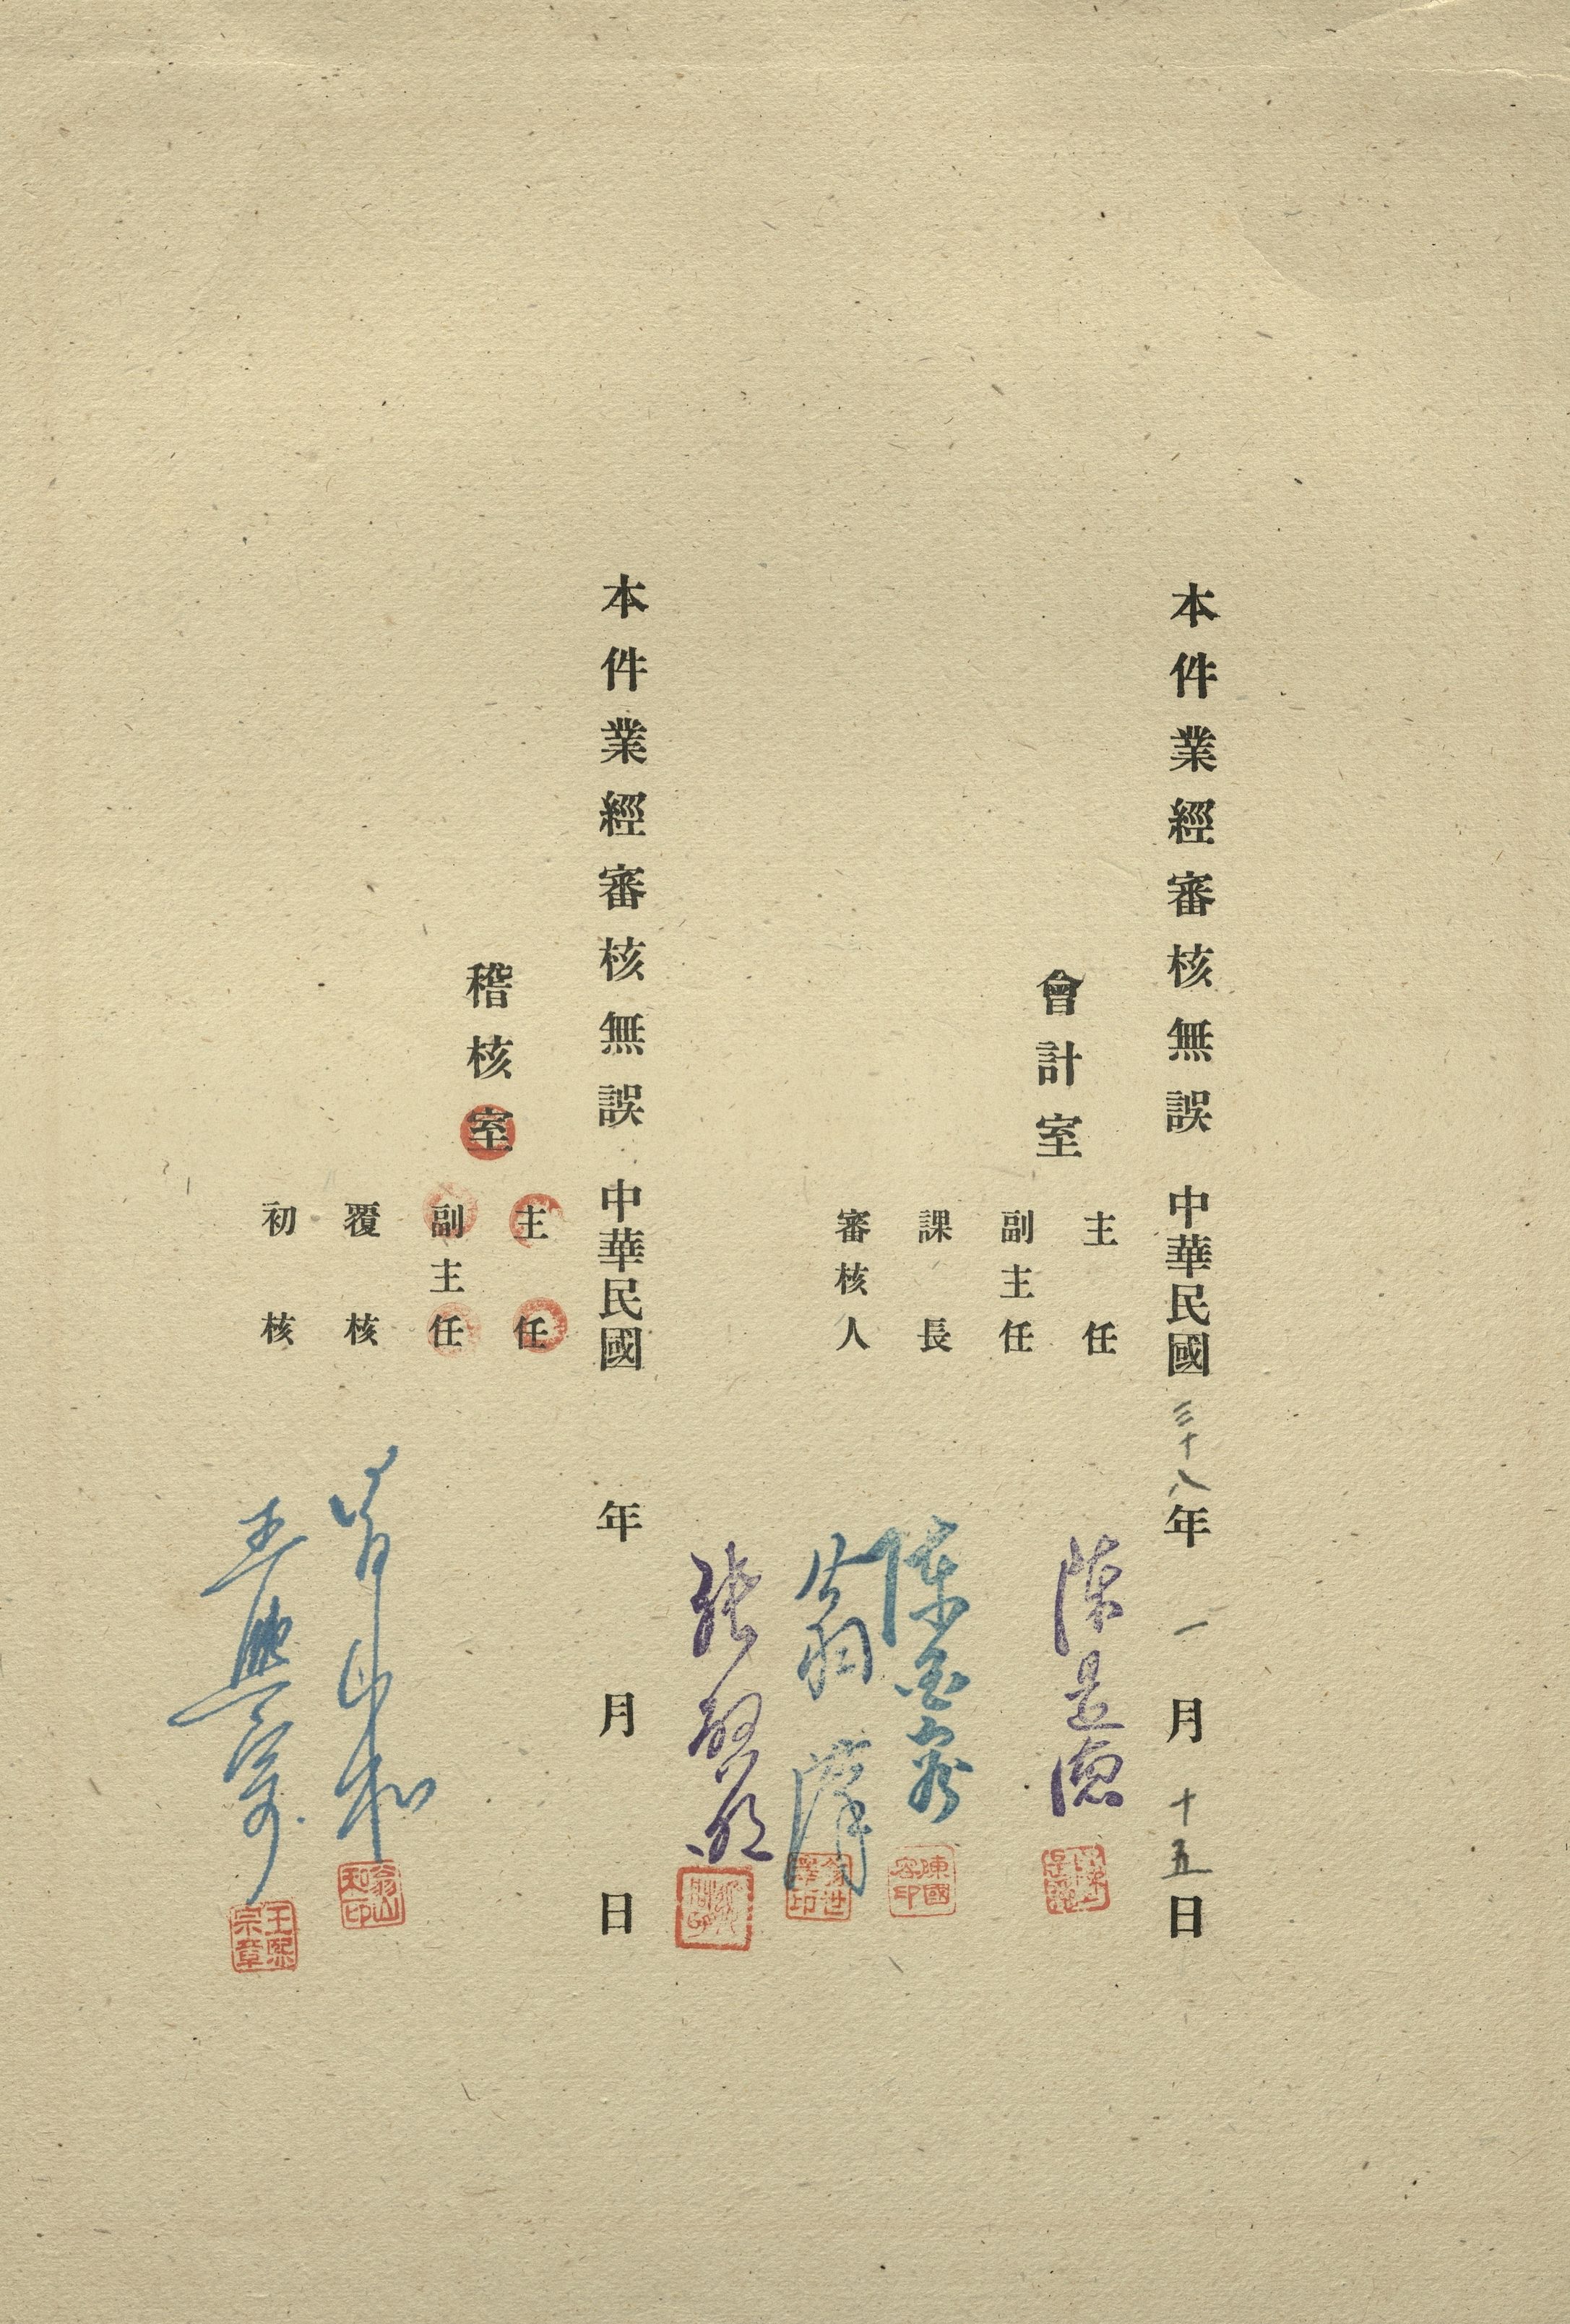 本件業經審核無誤 中華民國三十八年一月十五日
會計室
主任 陳是德
副主任
課長 陳國容
審核人 翁
張
本件業經審核無誤 中華民國 年 月 日
稽核室
主任
副主任
覆核
初核 王熙宗
陳國容印
翁山知印
王熙宗章